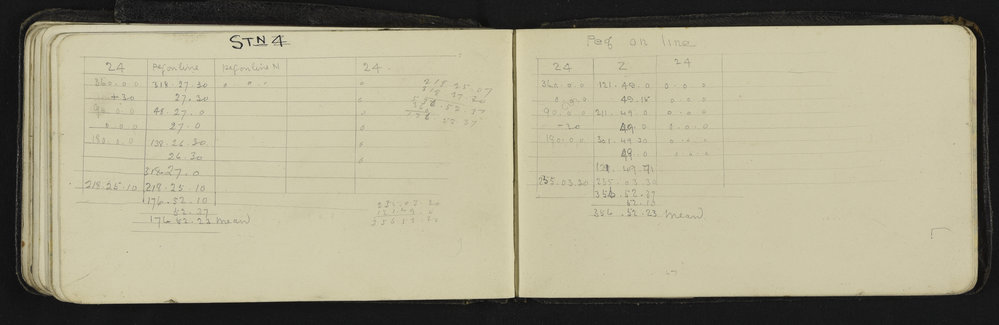 STN 4
24 Peg on line Peg on line N 24
360.0.0 318.27.30 0.0.0 0
+30 27.30 0
90.0.0 48.27.0 0
0.0.0 27.0 0
180.0.0 138.26.30 0
26.30 0
318.27.0
218.25.10 218.25.10
176.52.10
52.37
176 52.23 mean
218 25.07
52.37
255.03.30
Peg on line
24 Z 24
360.0.0 121.49.0 0.0.0
49.15 0.0.0
90.0.0 211.49.0 0.0.0
-30 49.0 0.0.0
180.0.0 301.49.30 0.0.0
49.0 0.0.0
255.03.30 255.03.30
356.52.37
52.10
356.52.23 mean